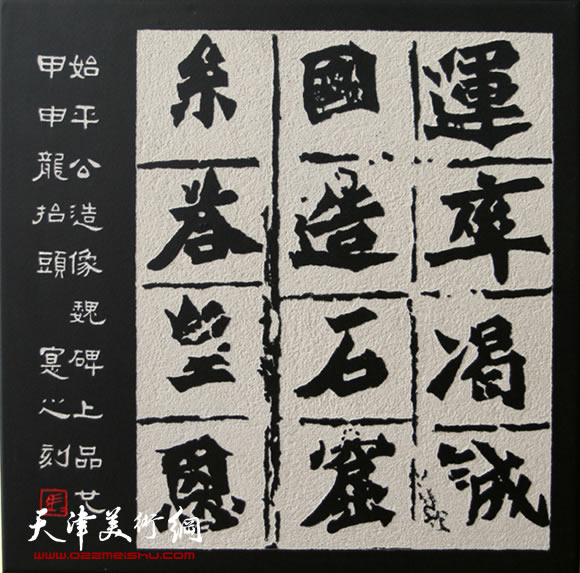 運率渴誠
國造石窟
系荅皇恩
始平公造像魏碑上品廿
甲申龍抬頭 寔心刻
天津美術網
www.022meishu.com